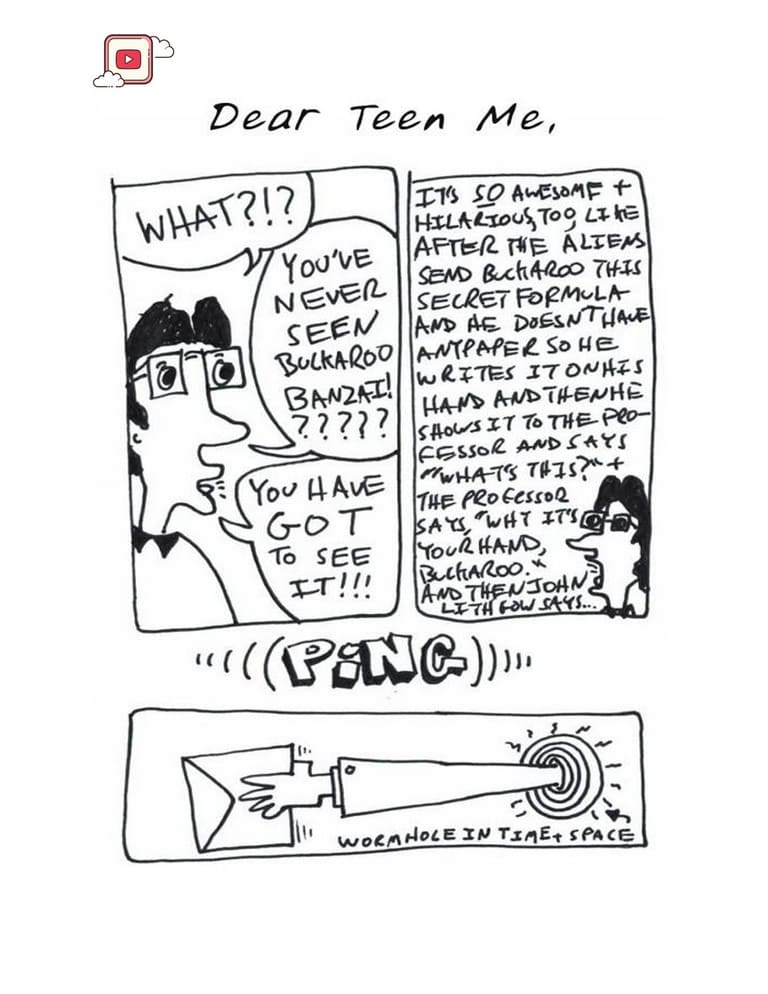 Dear Teen Me,
WHAT?!?
YOU'VE
NEVER
SEEN
BUCKAROO
BANZAI!
?????
YOU HAVE
GOT
TO SEE
IT!!!
IT'S SO AWESOME +
HILARIOUS, TOO, LIKE
AFTER THE ALIENS
SEND BUCKAROO THIS
SECRET FORMULA
AND HE DOESN'T HAVE
ANY PAPER SO HE
WRITES IT ON HIS
HAND AND THEN HE
SHOWS IT TO THE PRO-
FESSOR AND SAYS
"WHAT'S THIS?" +
THE PROFESSOR
SAYS, "WHY IT'S
YOUR HAND,
BUCKAROO."
AND THEN JOHN
LITHGOW SAYS...
PiNG
WORMHOLE IN TIME + SPACE